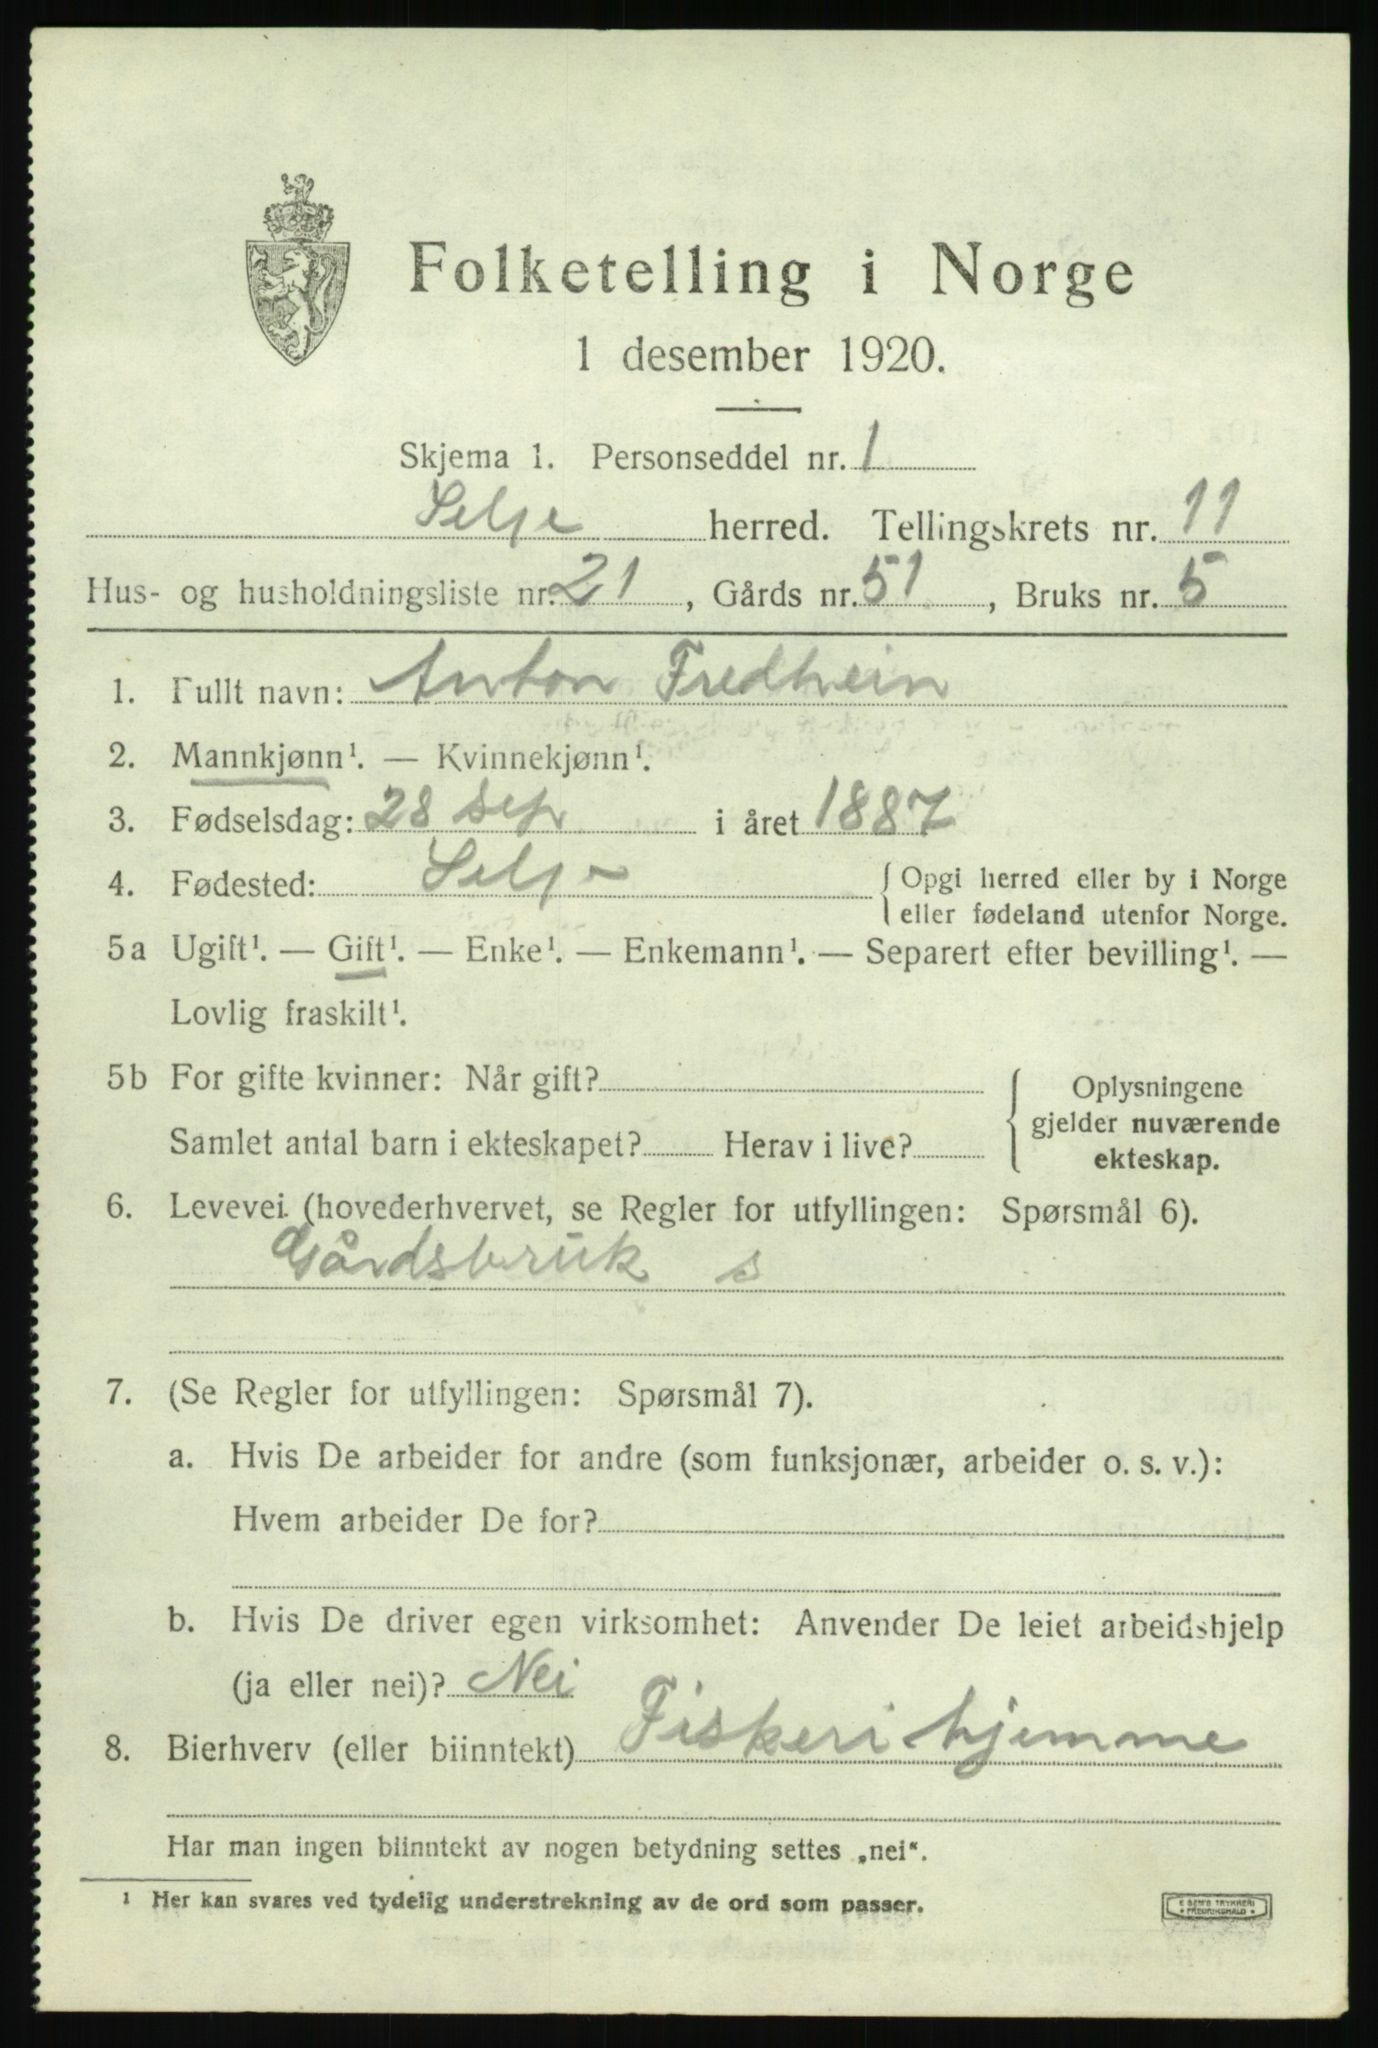 Folketelling i Norge
1 desember 1920.
Skjema 1. Personseddel nr. 1
Selje herred. Tellingskrets nr. 11
Hus- og husholdningsliste nr. 21, Gårds nr. 51, Bruks nr. 5
1. Fullt navn: Anton Fredheim
2. Mannkjønn¹. — Kvinnekjønn¹.
3. Fødselsdag: 28 sep i året 1887
4. Fødested: Selje { Opgi herred eller by i Norge
eller fødeland utenfor Norge.
5a Ugift¹. — Gift¹. — Enke¹. — Enkemann¹. — Separert efter bevilling¹. —
Lovlig fraskilt¹.
5b For gifte kvinner: Når gift? { Oplysningene
gjelder nuværende
Samlet antal barn i ekteskapet? Herav i live?
ekteskap.
6. Levevei (hovederhvervet, se Regler for utfyllingen: Spørsmål 6).
Gårdsbruk s
7. (Se Regler for utfyllingen: Spørsmål 7).
a. Hvis De arbeider for andre (som funksjonær, arbeider o. s. v.):
Hvem arbeider De for?
b. Hvis De driver egen virksomhet: Anvender De leiet arbeidshjelp
(ja eller nei)? Nei
8. Bierhverv (eller biinntekt) Fiskeri hjemme
Har man ingen biinntekt av nogen betydning settes „nei“.
¹ Her kan svares ved tydelig understrekning av de ord som passer.
E. SEM'S TRYKKERI
FREDRIKSHALD